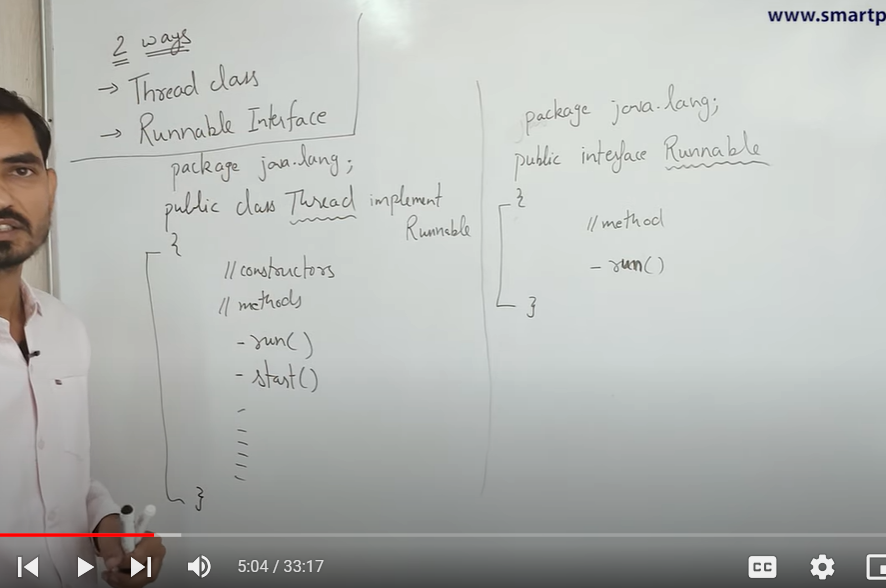 www.smartp
2 ways
→ Thread class
→ Runnable Interface
package java.lang;
public class Thread implement
Runnable
{
//constructors
// methods
- run()
- start()
}
package java.lang;
public interface Runnable
{
//method
- run()
}
5:04 / 33:17
CC